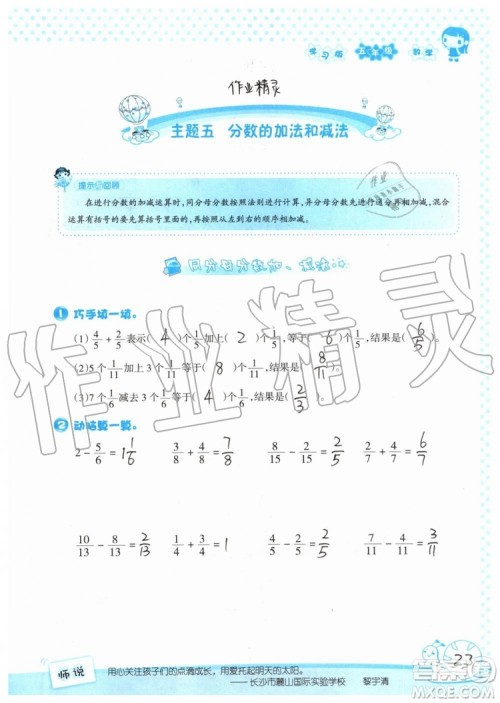 学习版 五年级 数学
作业精灵
主题五 分数的加法和减法
提示与回顾
在进行分数的加减运算时,同分母分数按照法则进行计算,异分母分数先进行通分再相加减,混合
运算有括号的要先算括号里面的,再按照从左到右的顺序相加减。
同分母分数加、减法
1 巧手填一填。
(1) 4/5 + 2/5 表示( 4 )个 1/5 加上( 2 )个 1/5,等于( 6 )个 1/5,结果是( 6/5 )
(2) 5个 1/11 加上 3 个 1/11 等于( 8 )个 1/11,结果是( 8/11 )
(3) 7个 1/11 减去 3 个 1/11 等于( 4 )个 1/11,结果是( 2/3 )
2 动脑算一算。
2 − 5/6 = 1 1/6 3/8 + 4/8 = 7/8 8/15 − 2/15 = 2/5 2/7 + 4/7 = 6/7
10/13 − 8/13 = 2/13 1/4 + 3/4 = 1 4/5 − 2/5 = 2/5 7/11 − 4/11 = 3/11
作业精灵
23
师说
用心关注孩子们的点滴成长,用爱托起明天的太阳。
——长沙市麓山国际实验学校 黎宇清